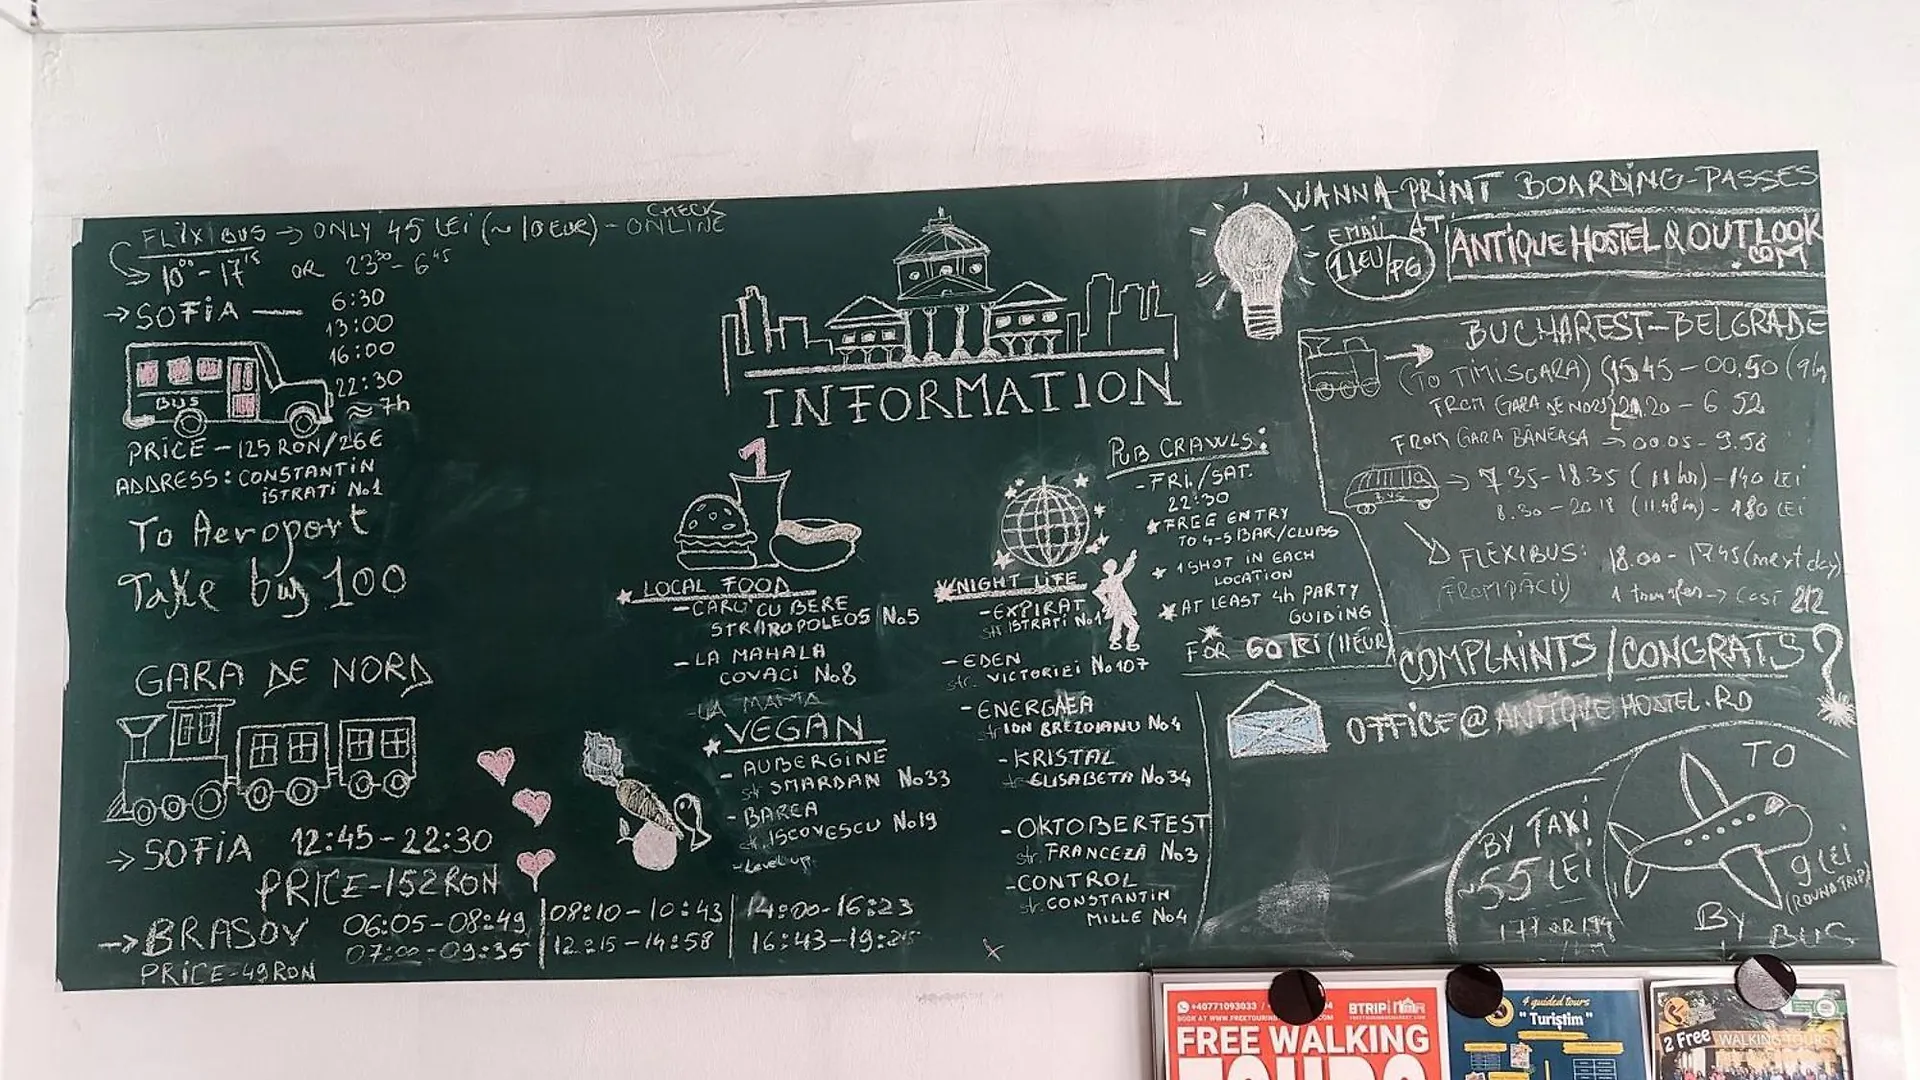 FLIXIBUS → ONLY 45 LEI (~10EUR) - CHECK ONLINE
10⁰⁰ - 17¹⁵ OR 23³⁰ - 6⁴⁵
→ SOFIA — 6:30
13:00
16:00
22:30
≈ 7h
BUS
PRICE - 125 RON/26€
ADDRESS: CONSTANTIN
ISTRATI No1
To Aeroport
Take bus 100
GARA DE NORD
→ SOFIA 12:45-22:30
PRICE-152RON
→ BRASOV 06:05-08:49 | 08:10-10:43 | 14:00-16:23
07:00-09:35 | 12:15-14:58 | 16:43-19:25
PRICE-49RON
INFORMATION
LOCAL FOOD
- CARU' CU BERE
No5
- LA MAHALA
COVACI No8
- LA MAMA
VEGAN
- AUBERGINE
str SMARDAN No33
- BARCA
str. ISCOVESCU No19
- Level up
NIGHT LIFE
- EXPIRAT
str ISTRATI No1
- EDEN
str. VICTORIEI No107
- ENERGAEA
str ION BREZOIANU No4
- KRISTAL
ELISABETA No34
- OKTOBERFEST
str. FRANCEZĂ No3
- CONTROL
str. CONSTANTIN
MILLE No4
PUB CRAWLS:
- FRI./SAT.
22:30
FREE ENTRY
TO 4-5 BAR/CLUBS
1 SHOT IN EACH
LOCATION
AT LEAST 4h PARTY
GUIDING
FOR 60 LEI (11EUR)
WANNA-PRINT BOARDING-PASSES
EMAIL AT
1 LEU/PG
ANTIQUEHOSTEL@OUTLOOK
.COM
BUCHAREST-BELGRADE
(TO TIMISOARA) 15 45 - 00.50
FROM GARA DE NORD 6 52
FROM GARA BĂNEASA → 00.05 - 9.58
BUS
→ 7 35 - 18.35 (11 hr) - 140 LEI
8.30 - 20 18 (11.48 hr) - 180 LEI
FLEXIBUS: 18.00 - 17.45 (next day)
1 transfer → cost 212
COMPLAINTS/CONGRATS?
OFFICE@ANTIQUE HOSTEL.RO
BY TAXI
~55 LEI
TO
9 LEI
(ROUND TRIP)
BY BUS
+40771093033
BTRIP
FREE WALKING
TOURS
4 guided tours
"Turiştim"
2 Free WALKING TOURS